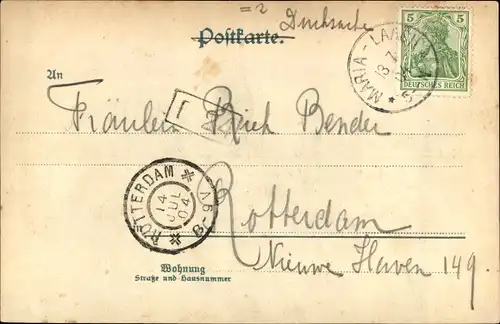 = 2 Drucksache
Postkarte.
MARIA - LAACH
5 5
DEUTSCHES REICH
An
Fräulein Reich Bender
1
ROTTERDAM
14 JUL 04
8-9V
Rotterdam
Nieuwe Haven 149
Wohnung
Straße und Hausnummer